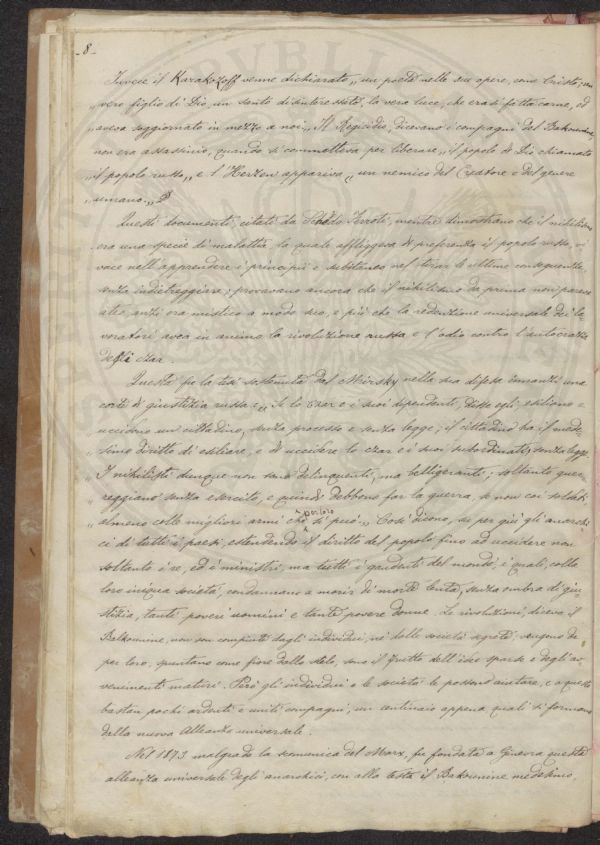 8
Invece il Karakozoff venne dichiarato „ un poeta nelle sue opere, come Cristo;
„ vero figlio di Dio, un santo disinteressato, la vera luce, che erasi fatta carne, ed
„ aveva soggiornato in mezzo a noi „. Il Regicidio, dicevano i compagni del Bakounine,
non era assassinio, quando si commetteva per liberare „ il popolo di Dio chiamato
„ il popolo russo „, e l'Herzen appariva „ un nemico del Creatore e del genere
„ umano. „
Questi documenti, citati da mentre dimostrano che il nihilismo
era una specie di malattia, la quale affliggeva di preferenza il popolo russo,
vace nell'apprendere i principii e nel tirar le ultime conseguenze,
senza indietreggiare; provavano ancora che il nihilismo da prima non pareva
ateo, anzi era mistico a modo suo, e più che la redenzione universale dei la
voratori avea in animo la rivoluzione russa e l'odio contro l'autocrazia
degli czar.
Questa fu la tesi sostenuta dal Mirsky nella sua difesa innanzi una
corte di giustizia russa „ Se lo Czar e i suoi dipendenti, disse egli, esiliano o
„ uccidono un cittadino, senza processo e senza legge; il cittadino ha il mede-
„ simo diritto di esiliare, e di uccidere lo czar e i suoi subordinati, senza legge.
„ I nihilisti dunque non sono delinquenti, ma belligeranti; soltanto guer
„ reggiano senza esercito, e quindi debbono far la guerra, se non coi soldati
„ almeno colle migliori armi che per loro si può. „ Così dicono, su per giù gli anarchi
ci di tutti i paesi, estendendo il diritto del popolo fino ad uccidere non
soltanto i re, ed i ministri, ma tutti i gaudenti del mondo, i quali, colla
loro iniqua società, condannano a morir di morte lenta, senza ombra di giu
stizia, tanti poveri uomini e tante povere donne. Le rivoluzioni, diceva il
Bakounine, non son compiute dagli individui, nè dalle società segrete; vengono da
per loro, spuntano come fiore dallo stelo, sono il frutto dell'idee sparse e degli av
venimenti maturi. Però gli individui e le società le possono aiutare, e a questo
bastan pochi ardenti e uniti compagni, un centinaio appena quali si formano
dalla nuova Alleanza universale.
Nel 1873 malgrado la scomunica del Marx, fu fondata a Ginevra questa
alleanza universale degli anarchici, con alla testa il Bakounine medesimo,